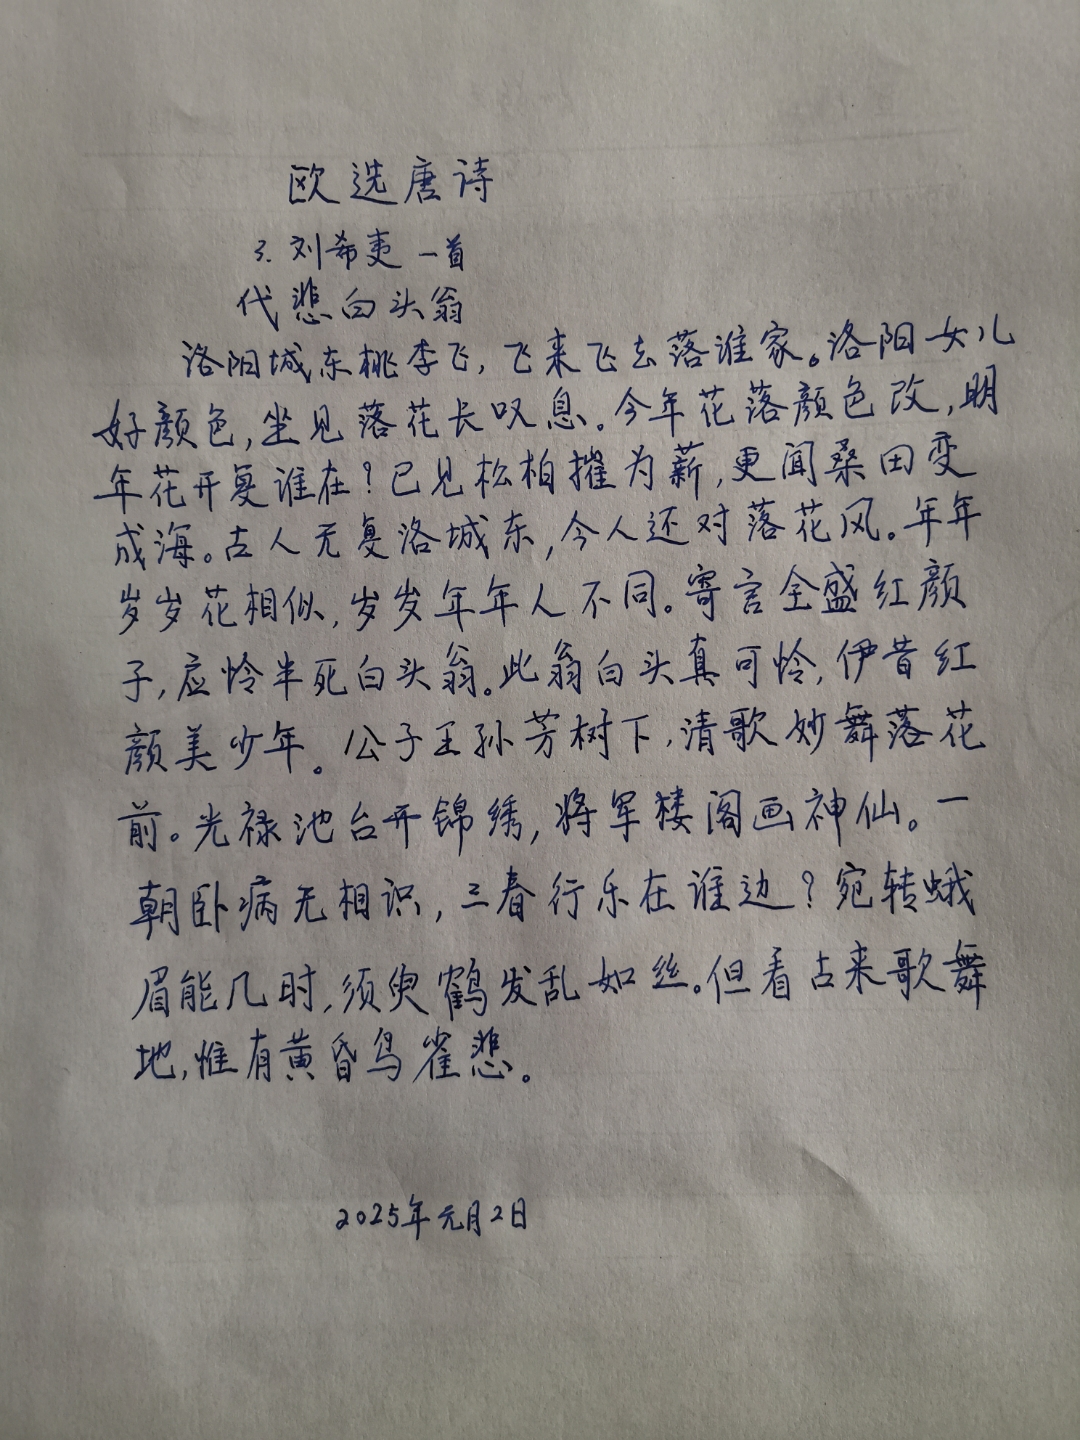 欧选唐诗
3. 刘希夷 一首
代悲白头翁
洛阳城东桃李飞，飞来飞去落谁家。洛阳女儿
好颜色，坐见落花长叹息。今年花落颜色改，明
年花开复谁在？已见松柏摧为薪，更闻桑田变
成海。古人无复洛城东，今人还对落花风。年年
岁岁花相似，岁岁年年人不同。寄言全盛红颜
子，应怜半死白头翁。此翁白头真可怜，伊昔红
颜美少年。公子王孙芳树下，清歌妙舞落花
前。光禄池台开锦绣，将军楼阁画神仙。一
朝卧病无相识，三春行乐在谁边？宛转蛾
眉能几时，须臾鹤发乱如丝。但看古来歌舞
地，惟有黄昏鸟雀悲。
2025年元月2日